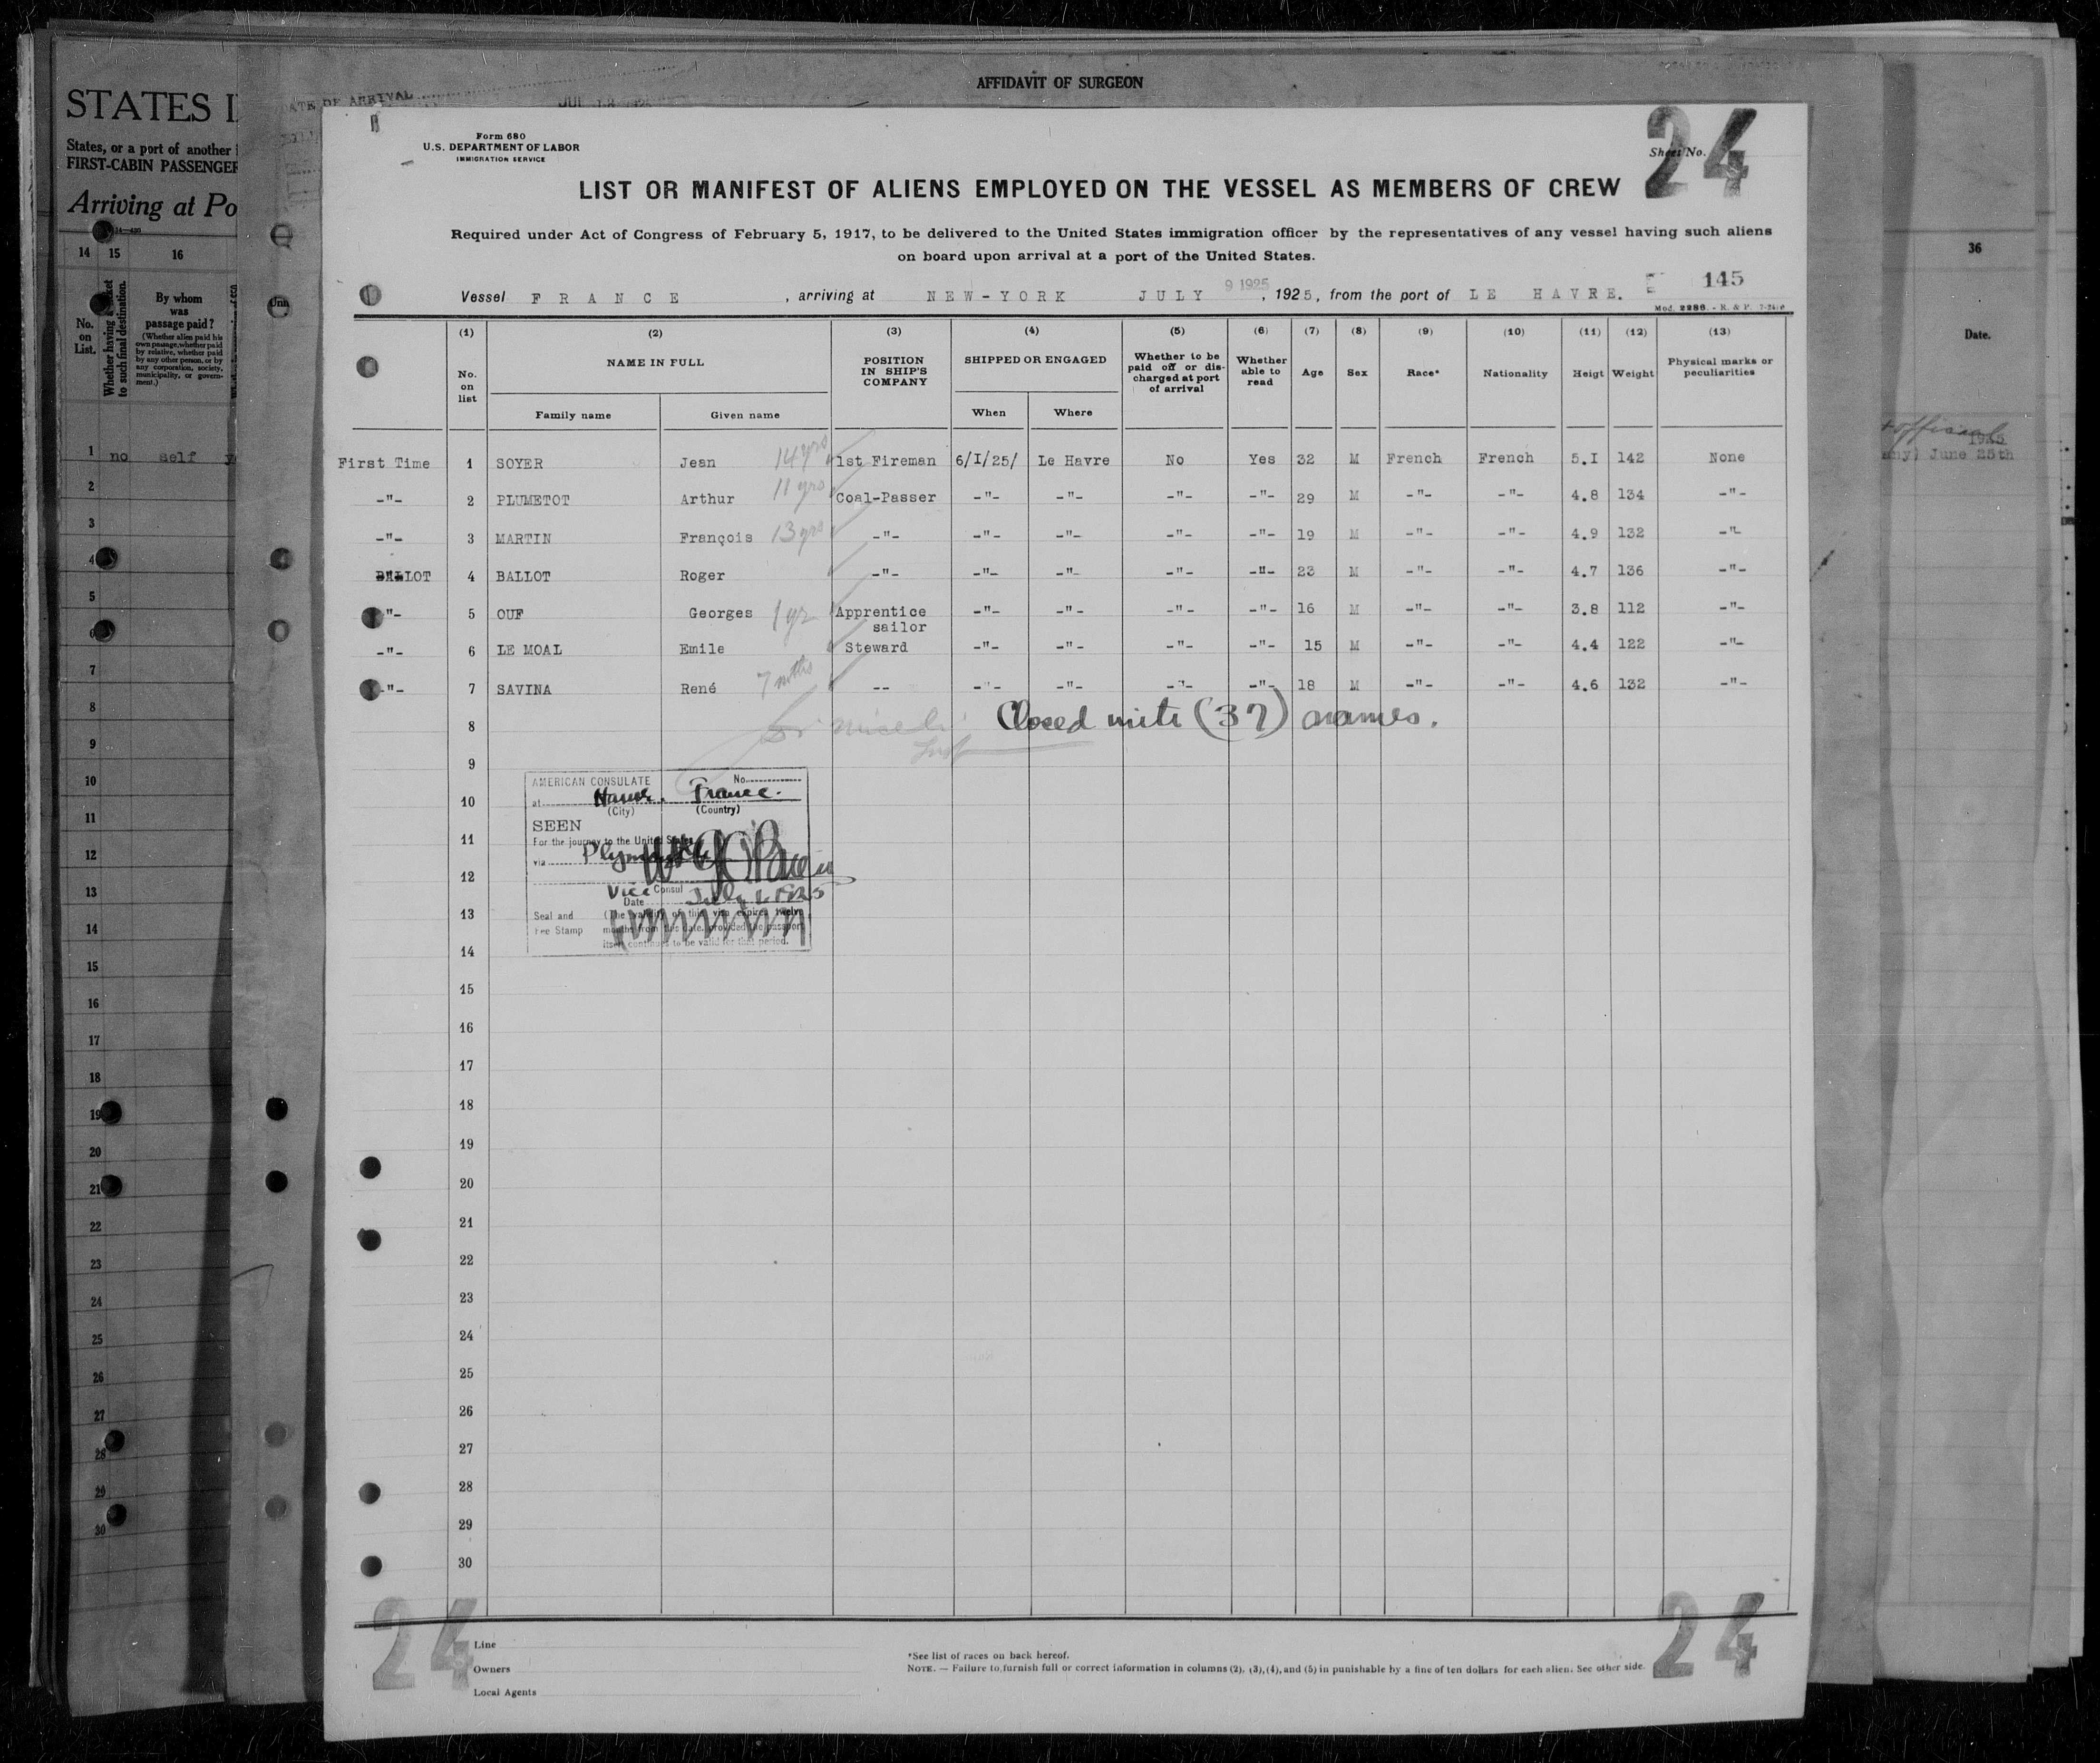 AFFIDAVIT OF SURGEON
DATE OF ARRIVAL
STATES
States, or a port of another
FIRST-CABIN PASSENGER
Arriving at Po
14 15 16
No. on List.
Whether having a ticket to such final destination.
By whom was passage paid?
(Whether alien paid his own passage, whether paid by relative, whether paid by any other person, or by any corporation, society, municipality, or government.)
1 no self
2
3
4
5
6
7
8
9
10
11
12
13
14
15
16
17
18
19
20
21
22
23
24
25
26
27
28
29
30
36
Date.
1925
June 25th
Form 680
U.S. DEPARTMENT OF LABOR
IMMIGRATION SERVICE
Sheet No. 24
LIST OR MANIFEST OF ALIENS EMPLOYED ON THE VESSEL AS MEMBERS OF CREW
Required under Act of Congress of February 5, 1917, to be delivered to the United States immigration officer by the representatives of any vessel having such aliens
on board upon arrival at a port of the United States.
145
Vessel FRANCE, arriving at NEW-YORK JULY 9 1925, 1925, from the port of LE HAVRE.
Mod. 2286. - R. & P. 7-24
(1) (2) (3) (4) (5) (6) (7) (8) (9) (10) (11) (12) (13)
No. on list
NAME IN FULL
Family name Given name
POSITION IN SHIP'S COMPANY
SHIPPED OR ENGAGED
When Where
Whether to be paid off or discharged at port of arrival
Whether able to read
Age Sex Race* Nationality Heigt Weight
Physical marks or peculiarities
First Time 1 SOYER Jean 14 yrs 1st Fireman 6/I/25/ Le Havre No Yes 32 M French French 5.I 142 None
-"- 2 PLUMETOT Arthur 11 yrs Coal-Passer -"- -"- -"- -"- 29 M -"- -"- 4.8 134 -"-
-"- 3 MARTIN François 13 yrs -"- -"- -"- -"- -"- 19 M -"- -"- 4.9 132 -"-
BALLOT 4 BALLOT Roger -"- -"- -"- -"- -"- 23 M -"- -"- 4.7 136 -"-
-"- 5 OUF Georges 1 yr Apprentice sailor -"- -"- -"- -"- 16 M -"- -"- 3.8 112 -"-
-"- 6 LE MOAL Emile Steward -"- -"- -"- -"- 15 M -"- -"- 4.4 122 -"-
-"- 7 SAVINA René 7 mths -- -"- -"- -"- -"- 18 M -"- -"- 4.6 132 -"-
8 Closed with (37) names.
9
10
11
12
13
14
15
16
17
18
19
20
21
22
23
24
25
26
27
28
29
30
AMERICAN CONSULATE No.
at Havre. France.
(City) (Country)
SEEN
For the journey to the United States
via Plymouth
Vice Consul
Date July 1, 1925
Seal and Fee Stamp
(The validity of this visa expires twelve
months from this date, provided the passport
itself continues to be valid for that period.
24
Line
Owners
Local Agents
*See list of races on back hereof.
NOTE. — Failure to furnish full or correct information in columns (2), (3), (4), and (5) in punishable by a fine of ten dollars for each alien. See other side.
24